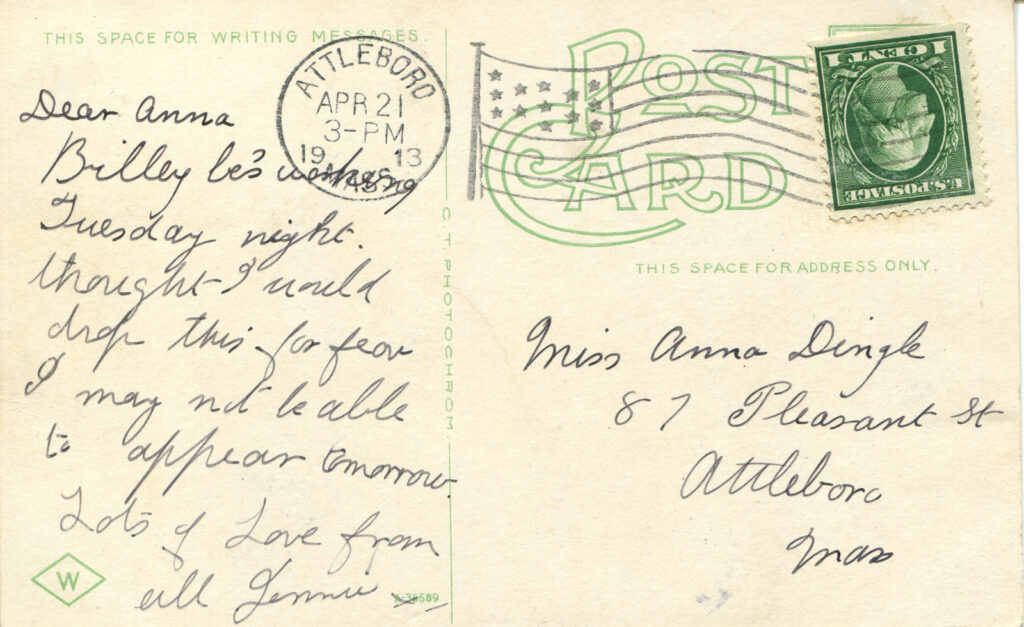 THIS SPACE FOR WRITING MESSAGES.
ATTLEBORO
APR 21
3-PM
19 13
MASS
POST CARD
1 CENT 1
U.S. POSTAGE
THIS SPACE FOR ADDRESS ONLY.
Dear Anna
Billey be's working
Tuesday night.
thought I would
drop this for fear
I may not be able
to appear tomorrow
Lots of Love from
all Jennie
Miss Anna Dingle
87 Pleasant St
Attleboro
Mas
C T PHOTOCHROM.
W
A-35589